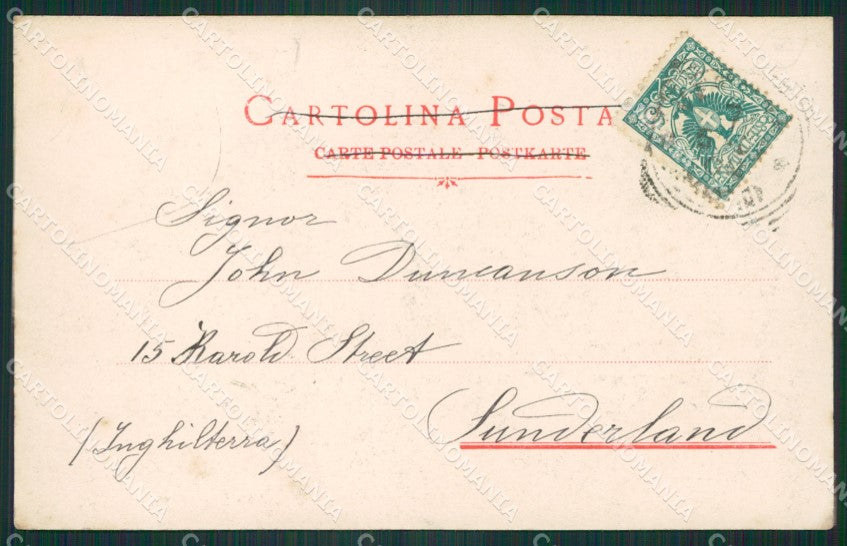 CARTOLINA POSTA
CARTE POSTALE - POSTKARTE
Signor
John Duncanson
15 Harold Street
Sunderland
(Inghilterra)
CARTOLINOMANIA